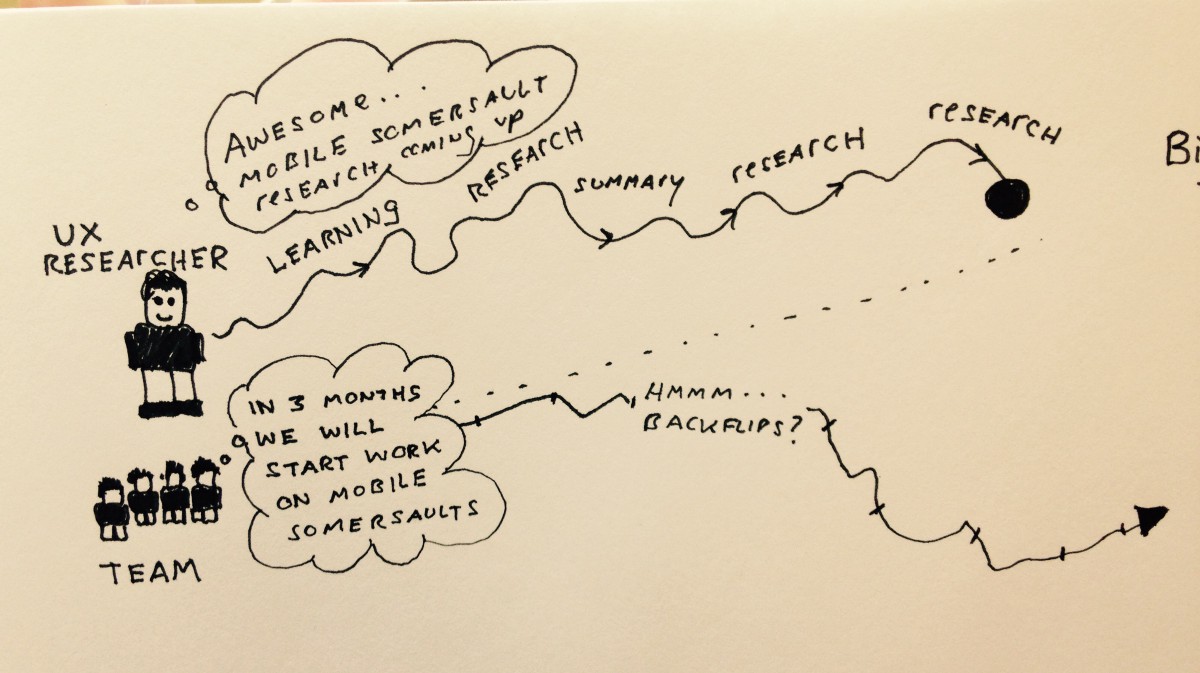 AWESOMe...
MOBILE SOMERSAULT
research coming up
UX
RESEArCHER
LEARNING
RESEARCH
SUMMARY
researcH
researcH
Bi
IN 3 MONTHS
WE WILL
START WORK
ON MOBILE
SOMERSAULTS
HMMM...
BACKFLIPS?
TEAM